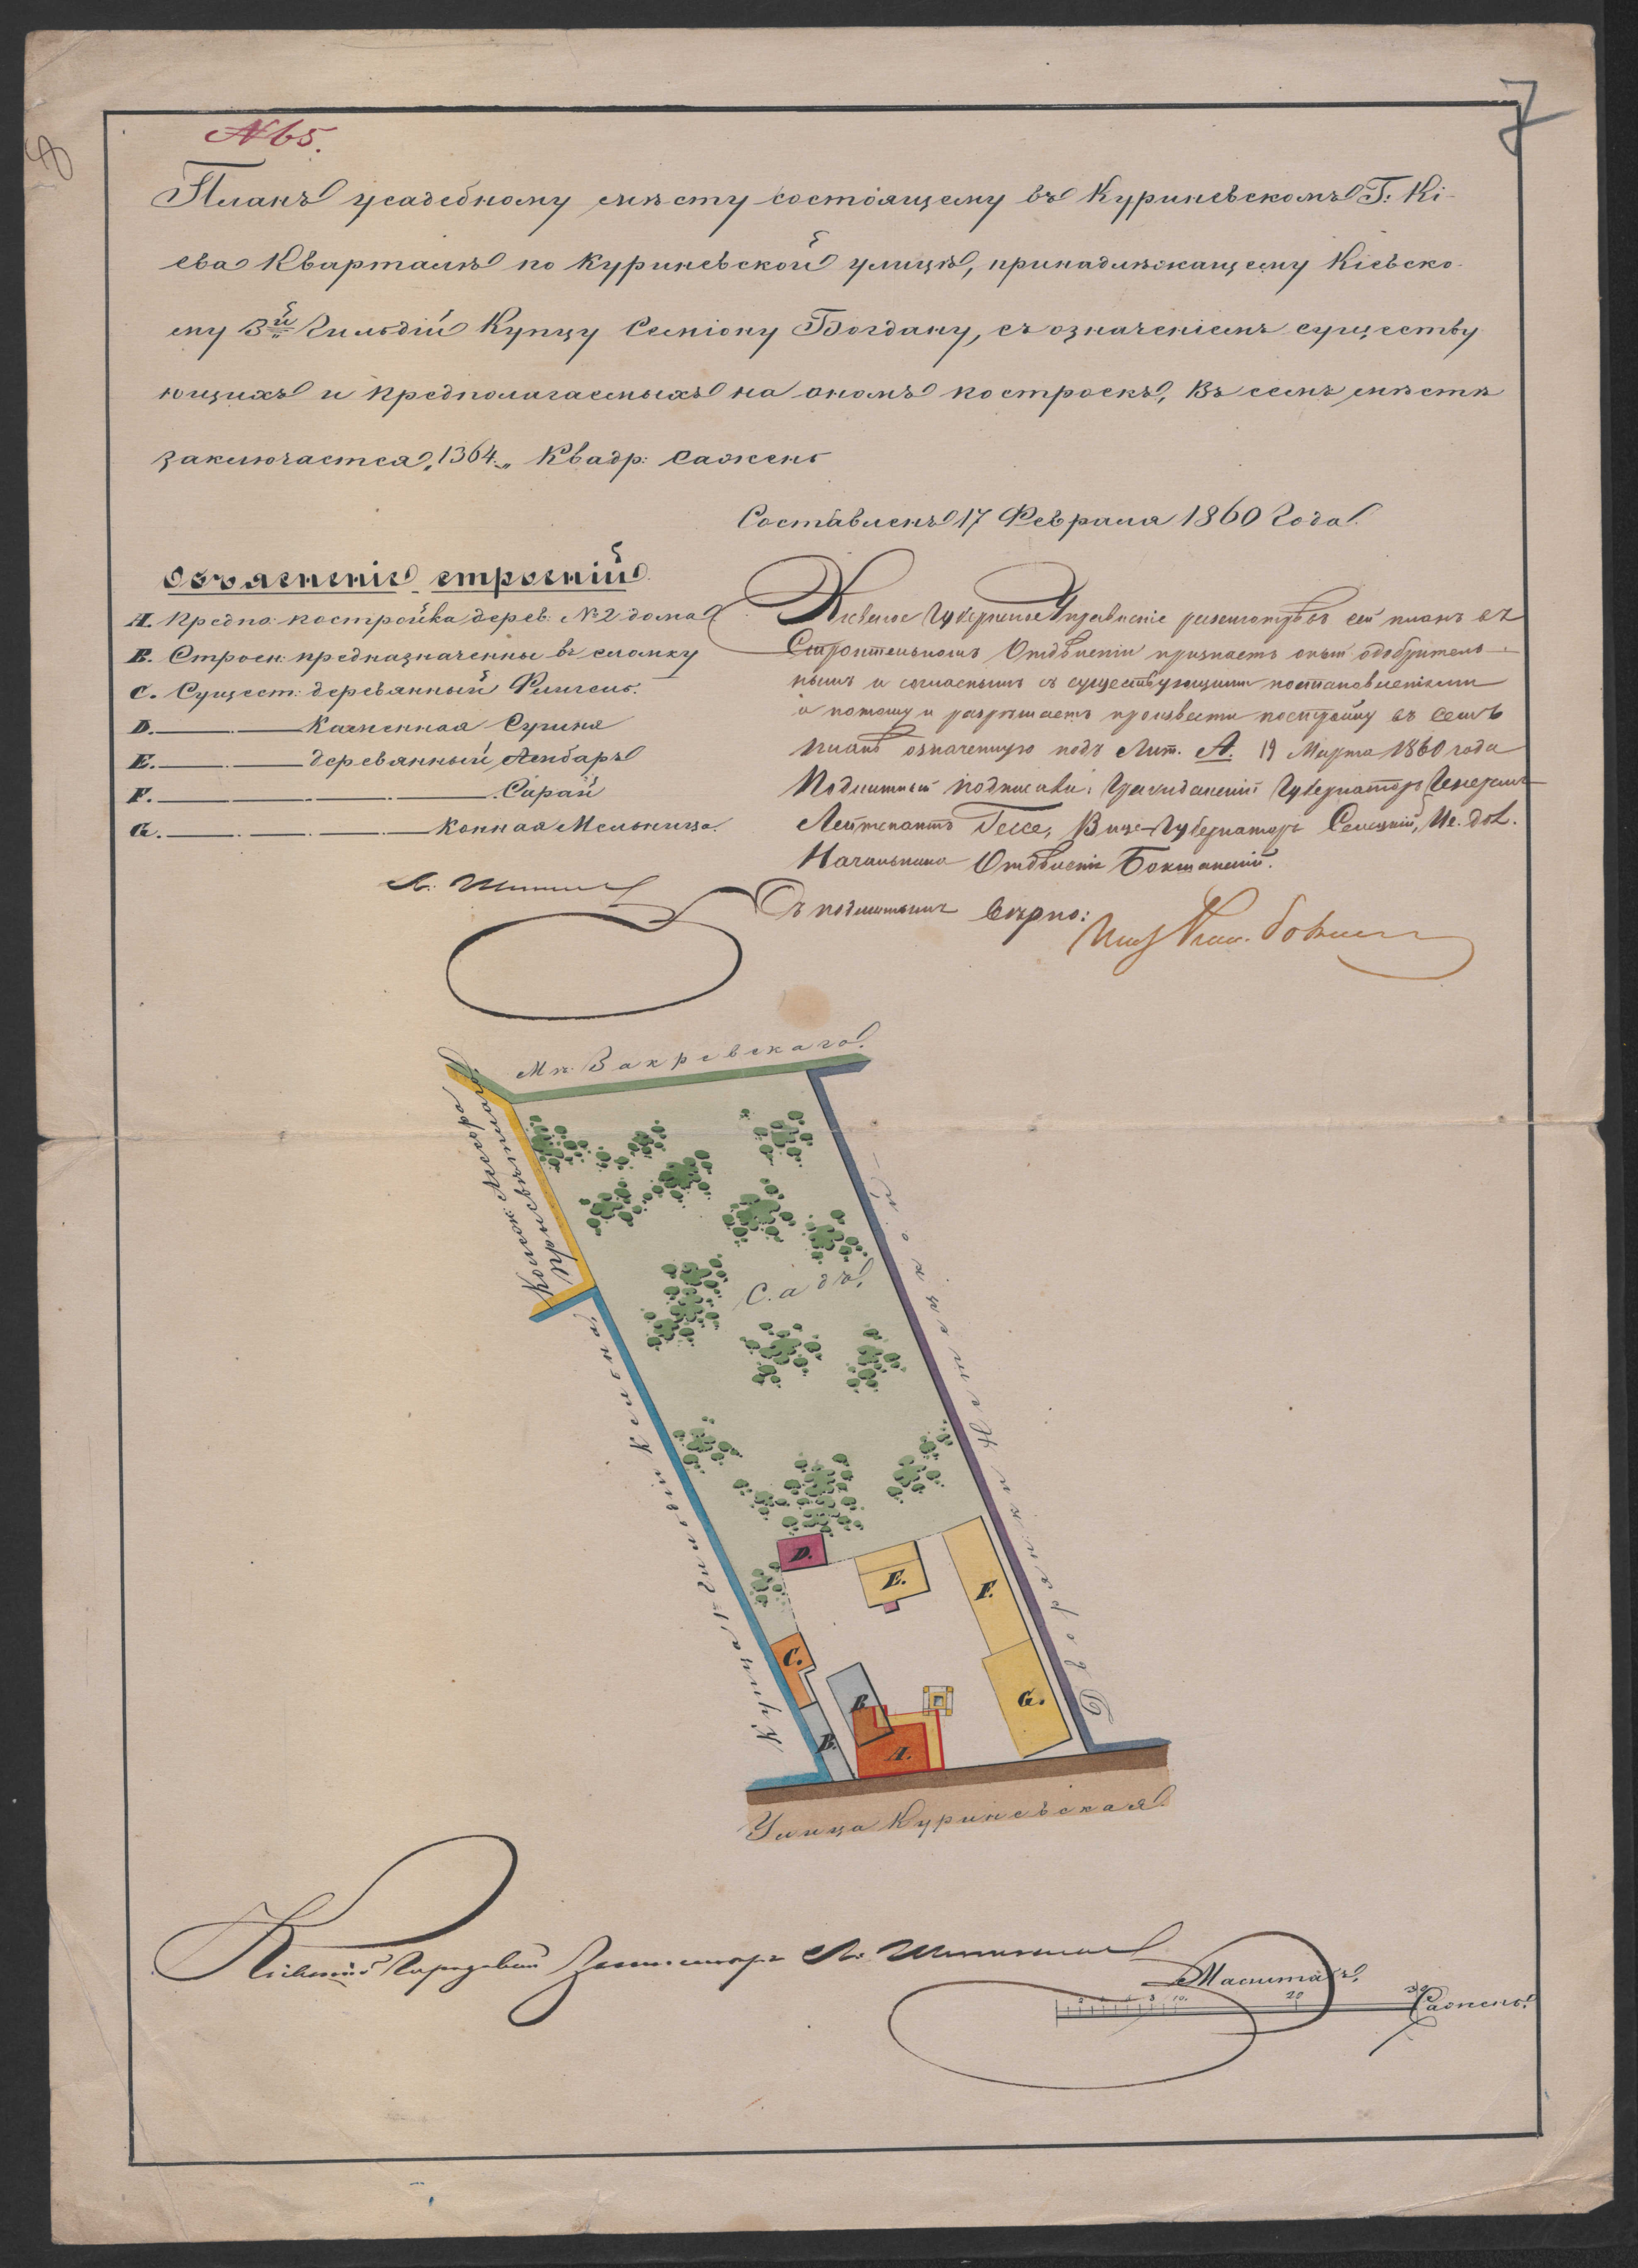 № 65.
7
8
Планъ усадебному мѣсту состоящему въ Куриневскомъ Г: Кі-
ева Кварталѣ по Куриневской улицѣ, принадлежащему Кіевско-
му 3й Гильдіи Купцу Семіону Богдану, съ означеніемъ существу
ющихъ и предполагаемыхъ на ономъ построекъ, Въ семъ мѣстѣ
заключается „1364„ Квадр: Сажень
Составленъ 17 Февраля 1860 Года.
Объясненіе строеній
A. Предпо: постройка дерев: № 2 дома
B. Строен: предназначенны въ сломку
C. Сущест: деревянный Флигель.
D. Каменная Сушня
E. деревянный Амбаръ
F. Сарай
G. Конная Мельница.
Кіевское Губернское Управленіе разсмотрѣвъ сей планъ въ
Строительномъ Отдѣленіи признаетъ оный одобритель-
нымъ и согласнымъ съ существующими постановленіями
а потому и разрѣшаетъ произвести постройку въ семъ
планѣ означенную подъ Лит. А. 19 Марта 1860 года
Подлинный подписали: Гражданскій Губернаторъ Генералъ-
Лейтенантъ Гессе, Вице-Губернаторъ Селецкій, Ис. дол.
Начальника Отдѣленія
Съ подлиннымъ вѣрно:
Мѣ: Закревскаго.
Колеж: Ассесора
Садъ.
Купца 1й Гильдіи
Дворянки
D.
E.
F.
C.
B.
B.
A.
G.
Улица Куриневская.
Кіевскій Городовой Землемѣръ
Масштабъ.
10. 20 30 Сажень.